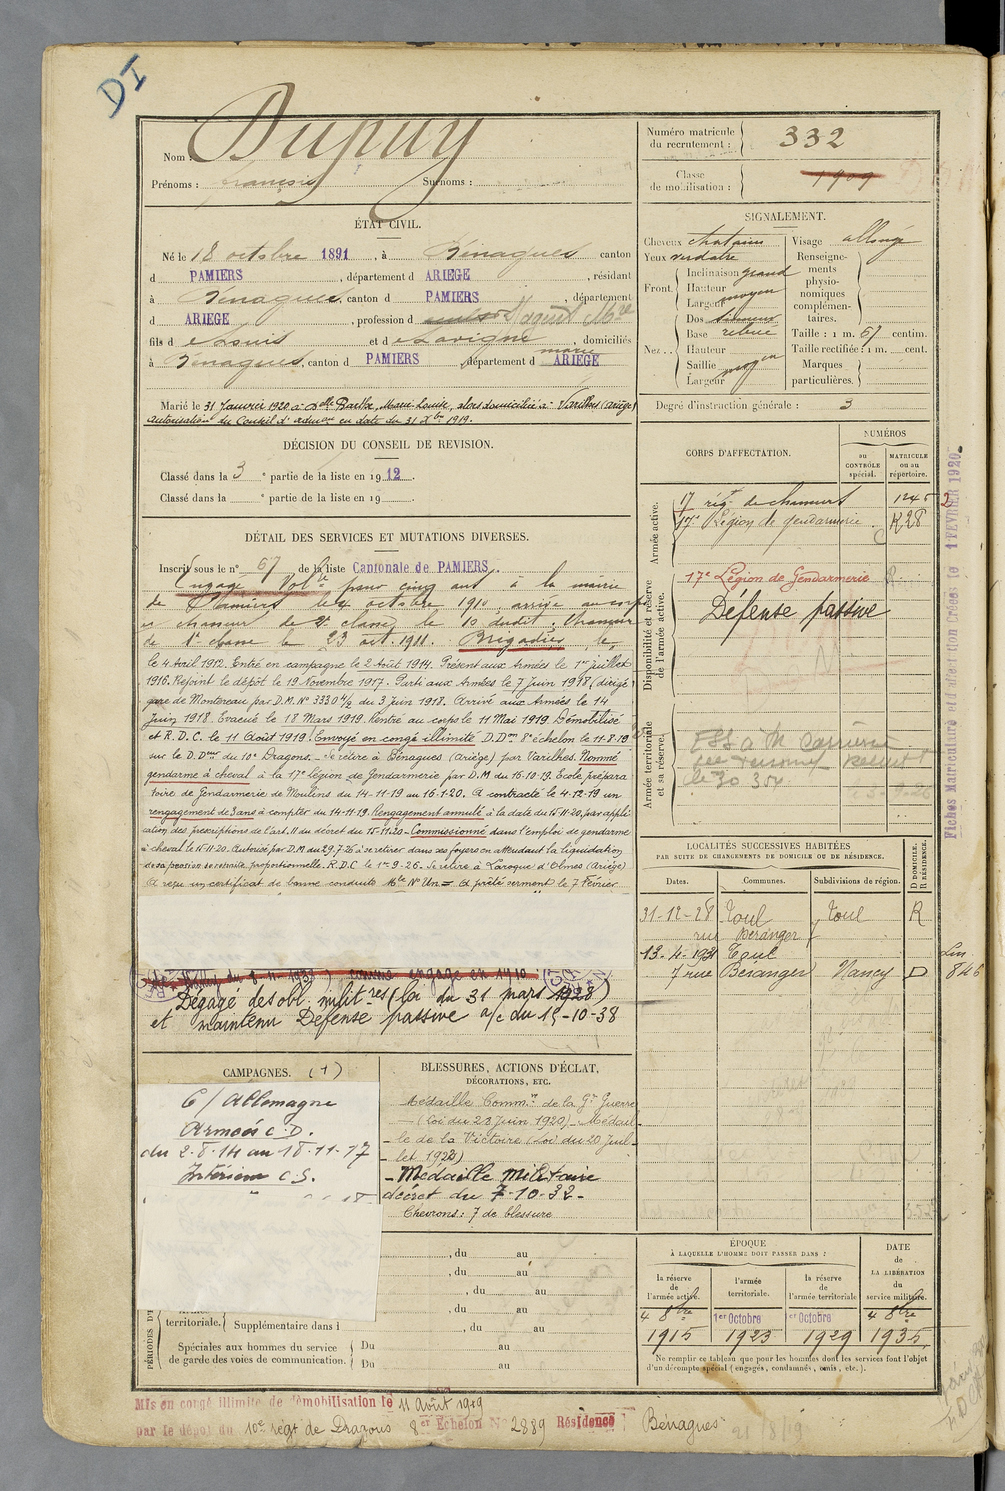 DI
Nom : Dupuy
Prénoms : françois Surnoms :
ÉTAT CIVIL.
Né le 18 octobre 1891, à Bénagues canton
d PAMIERS, département d ARIEGE, résidant
à Bénagues, canton d PAMIERS, département
d ARIEGE, profession d
fils d e Louis et d e Lavigne marie, domiciliés
à Bénagues, canton d PAMIERS, département d ARIEGE
Marié le 31 Janvier 1920 à Delle Barthe, Marie-Louise, alors domiciliée à Varilhes (Ariège)
Autorisation du Conseil d'admon en date du 31 Xbre 1919.
DÉCISION DU CONSEIL DE REVISION.
Classé dans la 3 e partie de la liste en 1912.
Classé dans la e partie de la liste en 19 .
DÉTAIL DES SERVICES ET MUTATIONS DIVERSES.
Inscrit sous le n° 67 de la liste Cantonale de PAMIERS.
Engagé Volre pour cinq ans à la mairie
de Pamiers le 4 octobre 1910, arrivé au corps
et chasseur de 2e classe le 10 dudit. Chasseur
de 1e classe le 23 oct. 1911. Brigadier le
le 4 Avril 1912. Entré en campagne le 2 Août 1914. Présent aux Armées le 1er juillet
1916. Rejoint le dépôt le 19 Novembre 1917. Parti aux Armées le 7 Juin 1918 (dirigé
gare de Montereau par D.M. N° 3330 4/2 du 3 juin 1918. Arrivé aux Armées le 14
Juin 1918. Evacué le 18 Mars 1919. Rentré au corps le 11 Mai 1919. Démobilisé
et R.D.C. le 11 Août 1919. Envoyé en congé illimité D.Don 8e échelon le 11-8-19
sur le D.Deur du 10e Dragons. Se retire à Bénagues (Ariège) par Varilhes. Nommé
gendarme à cheval à la 17e Légion de Gendarmerie par D.M. du 16-10-19. Ecole prépara
toire de Gendarmerie de Moulins du 14-11-19 au 16-1-20. A contracté le 4-12-19 un
rengagement de 3 ans à compter du 14-11-19. Rengagement annulé à la date du 15-11-20, par appli
cation des prescriptions de l'art. 11 du décret du 15-11-20. Commissionné dans l'emploi de gendarme
à cheval le 15-11-20. Autorisé par D.M. du 29.7.26 à se retirer dans ses foyers en attendant la liquidation
de sa pension de retraite proportionnelle. R.D.C. le 1er-9-26. Se retire à Laroque d'Olmes (Ariège)
A reçu un certificat de bonne conduite Mle N° Un = A prêté serment le 7 Février
comme engagé en 1910
Dégagé des obl. militres (loi du 31 mars 1928)
et maintenu Défense passive a/c du 15-10-38
CAMPAGNES. (1)
C/ Allemagne
Armées C.D.
du 2.8.14 au 18.11.17
Intérieur C.S.
BLESSURES, ACTIONS D'ÉCLAT,
DÉCORATIONS, ETC.
Médaille Commve de la Gde Guerre
(Loi du 23 Juin 1920) - Médail-
-le de la Victoire (Loi du 20 Juil-
-let 1922)
- Médaille Militaire
décret du 7-10-32 -
Chevrons : 7 de blessure
, du au
, du au
, du au
, du au
PÉRIODES D'
territoriale. Supplémentaire dans l , du au
Spéciales aux hommes du service Du au
de garde des voies de communication. Du au
Mis en congé illimité de démobilisation le 11 Août 1919
par le dépôt du 10e régt de Dragons 8er Échelon N° 2889 Résidence Bénagues
Numéro matricule
du recrutement : 332
Classe
de mobilisation : 1909
SIGNALEMENT.
Cheveux chatains
Yeux verdâtre
Front. Inclinaison grand
Hauteur
Largeur moyen
Nez .. Dos
Base relevé
Hauteur
Saillie
Largeur moyen
Visage allongé
Renseigne-
ments
physio-
nomiques
complémen-
taires.
Taille : 1 m. 67 centim.
Taille rectifiée : 1 m. cent.
Marques
particulières.
Degré d'instruction générale : 3
CORPS D'AFFECTATION.
NUMÉROS
au
CONTRÔLE
spécial.
MATRICULE
ou au
répertoire.
Armée active.
17 rég. de chasseurs 1245
17e Légion de gendarmerie K28
Disponibilité et réserve
de l'armée active.
17e Légion de Gendarmerie
Défense passive
Armée territoriale
et sa réserve.
Fiches Matriculaire et d'affectation Créées le 1 FEVRIER 1920
LOCALITÉS SUCCESSIVES HABITÉES
PAR SUITE DE CHANGEMENTS DE DOMICILE OU DE RÉSIDENCE.
Dates. Communes. Subdivisions de région. D DOMICILE. R RÉSIDENCE.
31-12-28 Toul Toul R
rue Béranger
13-4-1931 Toul
7 rue Béranger Nancy D 846
ÉPOQUE
À LAQUELLE L'HOMME DOIT PASSER DANS :
la réserve
de
l'armée active.
l'armée
territoriale.
la réserve
de
l'armée territoriale
DATE
de
LA LIBÉRATION
du
service militaire.
4 8bre 1er Octobre 1er Octobre 4 8bre
1915 1923 1929 1935
Ne remplir ce tableau que pour les hommes dont les services font l'objet
d'un décompte spécial (engagés, condamnés, omis, etc.).